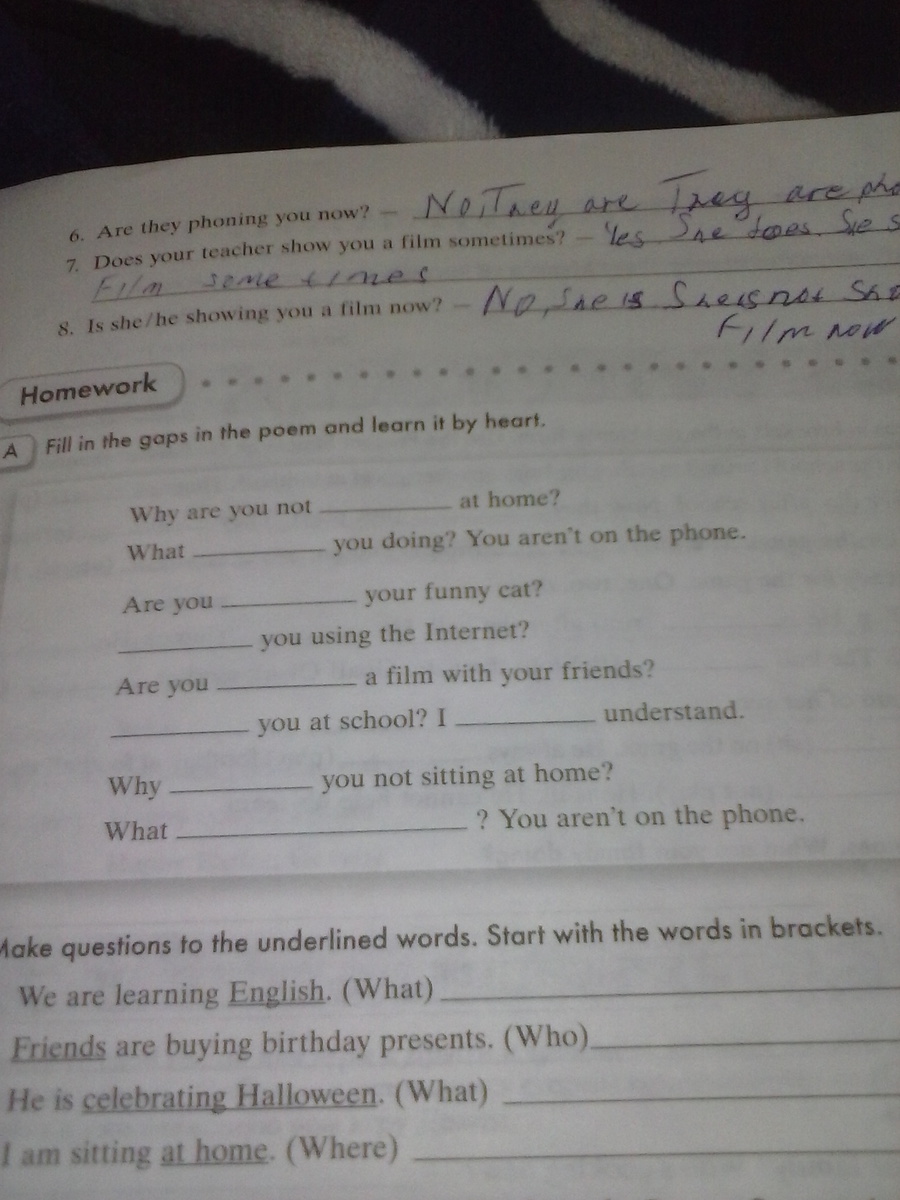 6. Are they phoning you now? – No, They are They are pho
7. Does your teacher show you a film sometimes? – Yes She does. She s
Film some times
8. Is she/he showing you a film now? – No, she is She is not Sho
Film now
Homework
A Fill in the gaps in the poem and learn it by heart.
Why are you not __________ at home?
What __________ you doing? You aren't on the phone.
Are you __________ your funny cat?
__________ you using the Internet?
Are you __________ a film with your friends?
__________ you at school? I __________ understand.
Why __________ you not sitting at home?
What ____________________ ? You aren't on the phone.
Make questions to the underlined words. Start with the words in brackets.
We are learning English. (What)
Friends are buying birthday presents. (Who)
He is celebrating Halloween. (What)
I am sitting at home. (Where)